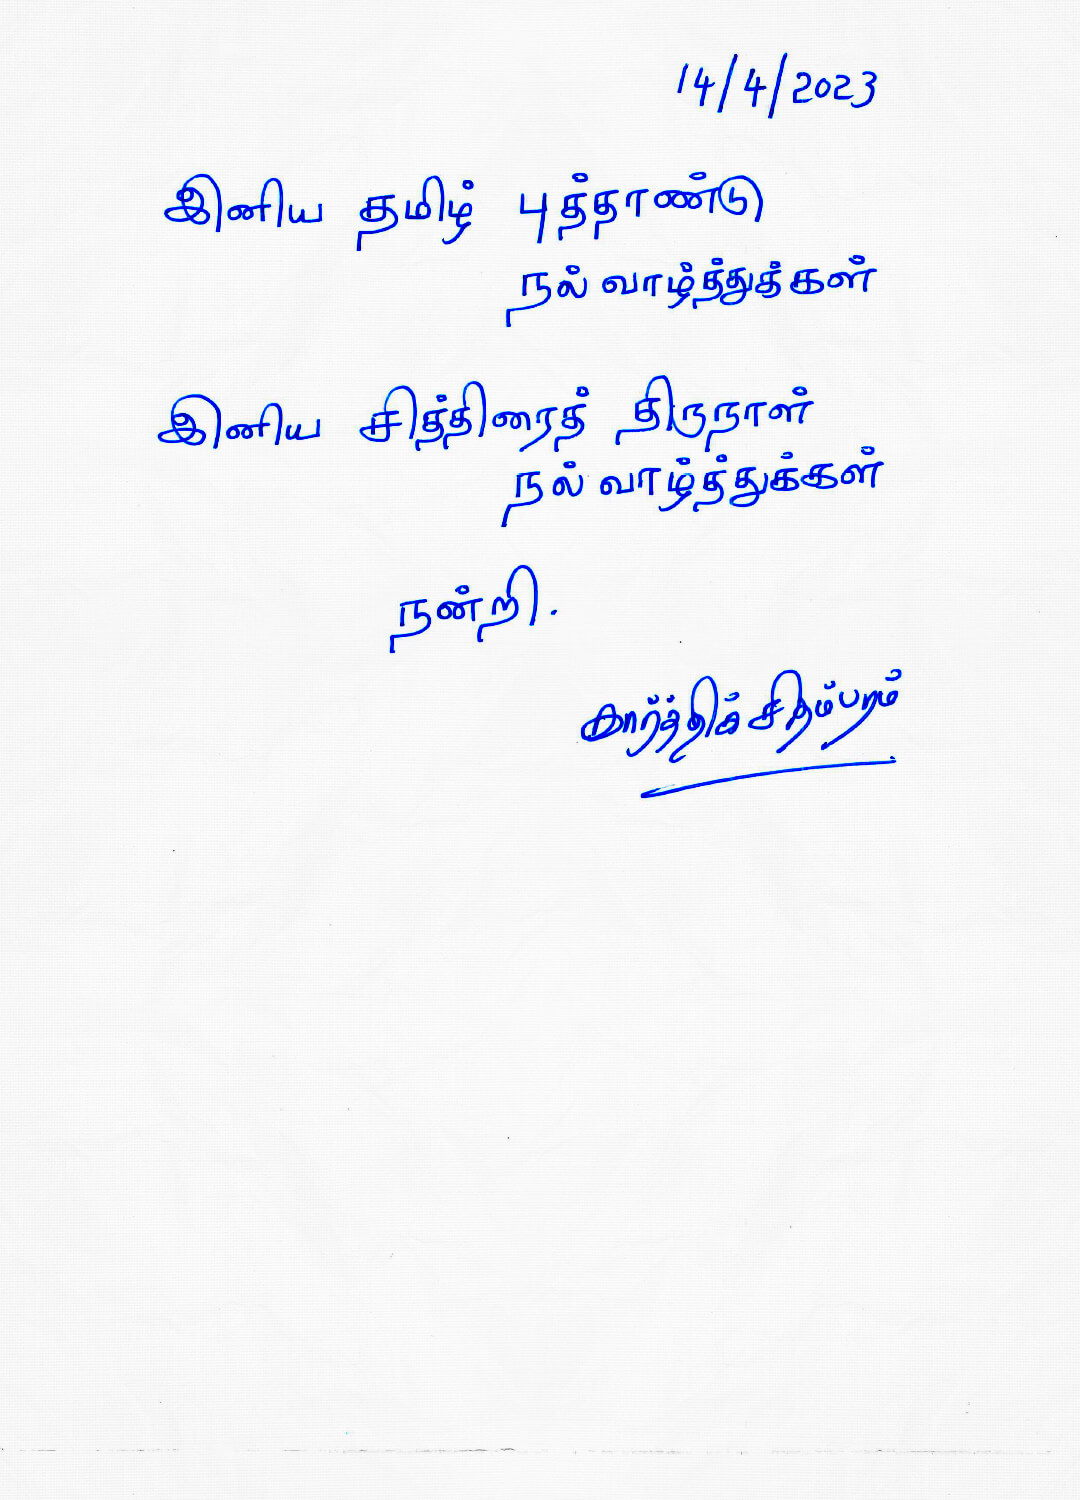 14/4/2023
இனிய தமிழ் புத்தாண்டு
நல் வாழ்த்துக்கள்
இனிய சித்திரைத் திருநாள்
நல் வாழ்த்துக்கள்
நன்றி.
கார்த்திக் சிதம்பரம்